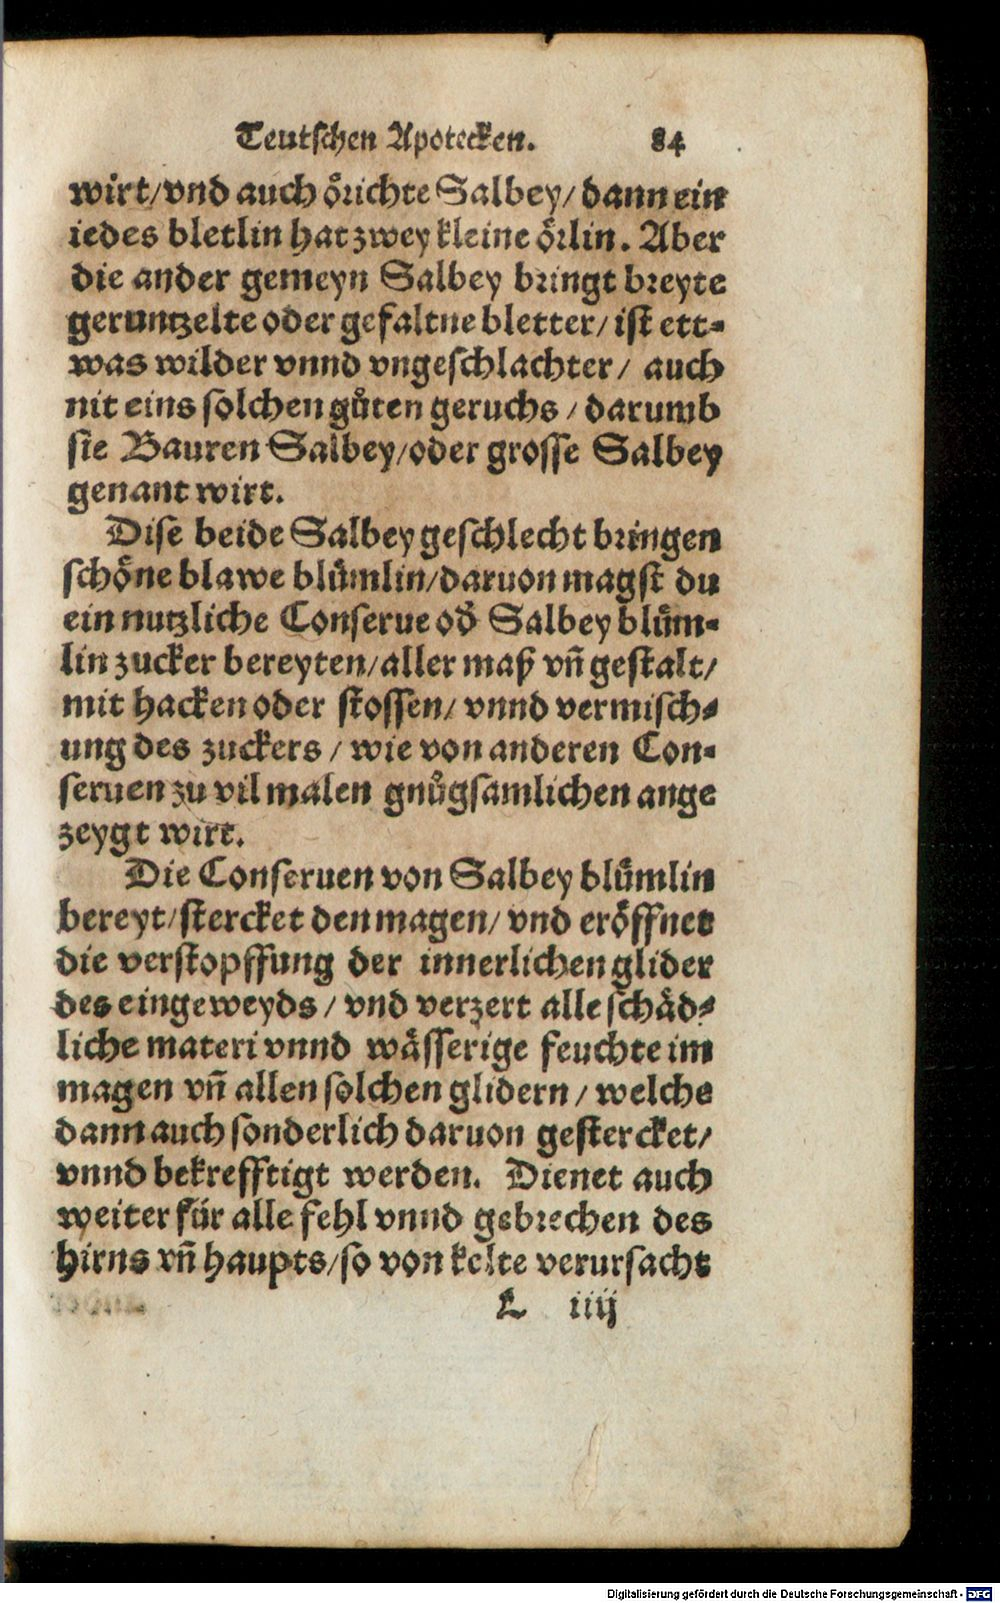 Teutschen Apotecken. 84
wirt/vnd auch örichte Salbey/dann ein
iedes bletlin hat zwey kleine örlin. Aber
die ander gemeyn Salbey bringt breyte
geruntzelte oder gefaltne bletter/ist ett⸗
was wilder vnnd vngeschlachter/ auch
nit eins solchen gůten geruchs/darumb
sie Bauren Salbey/oder grosse Salbey
genant wirt.
Dise beide Salbey geschlecht bringen
schöne blawe blümlin/daruon magst du
ein nutzliche Conserue od̕ Salbey blüm⸗
lin zucker bereyten/aller maß vñ gestalt/
mit hacken oder stossen/vnnd vermisch⸗
ung des zuckers/wie von anderen Con⸗
seruen zu vil malen gnůgsamlichen ange
zeygt wirt.
Die Conseruen von Salbey blümlin
bereyt/stercket den magen/vnd eröffnet
die verstopffung der innerlichen glider
des eingeweyds/vnd verzert alle schäd⸗
liche materi vnnd wässerige feuchte im
magen vñ allen solchen glidern/welche
dann auch sonderlich daruon gestercket/
vnnd bekrefftigt werden. Dienet auch
weiter für alle fehl vnnd gebrechen des
hirns vñ haupts/so von kelte verursacht
L iiij
Digitalisierung gefördert durch die Deutsche Forschungsgemeinschaft - DFG